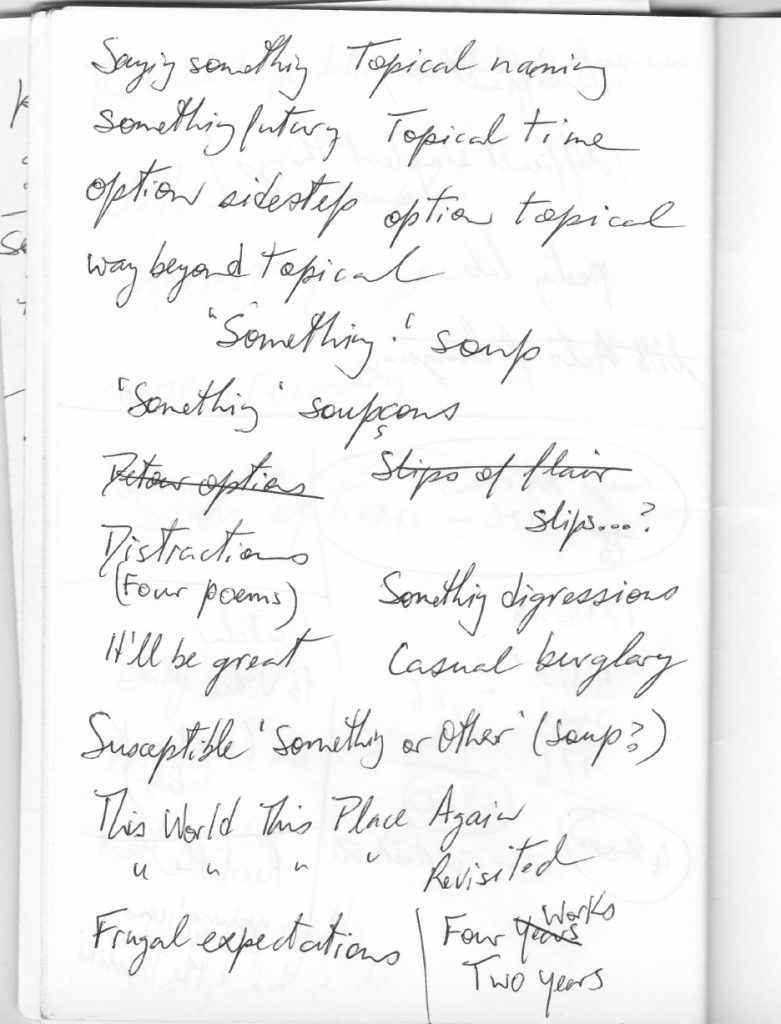 Saying something Topical naming
something futury Topical time
option sidestep option topical
way beyond topical
"Something!' soup
'Something' soupçons
Detour options Slips of flair
slips...?
Distractions
(Four poems) Something digressions
It'll be great Casual burglary
Susceptible 'Something or Other' (soup?)
This World This Place Again
" " " " Revisited
Frugal expectations Four Years Works
Two years